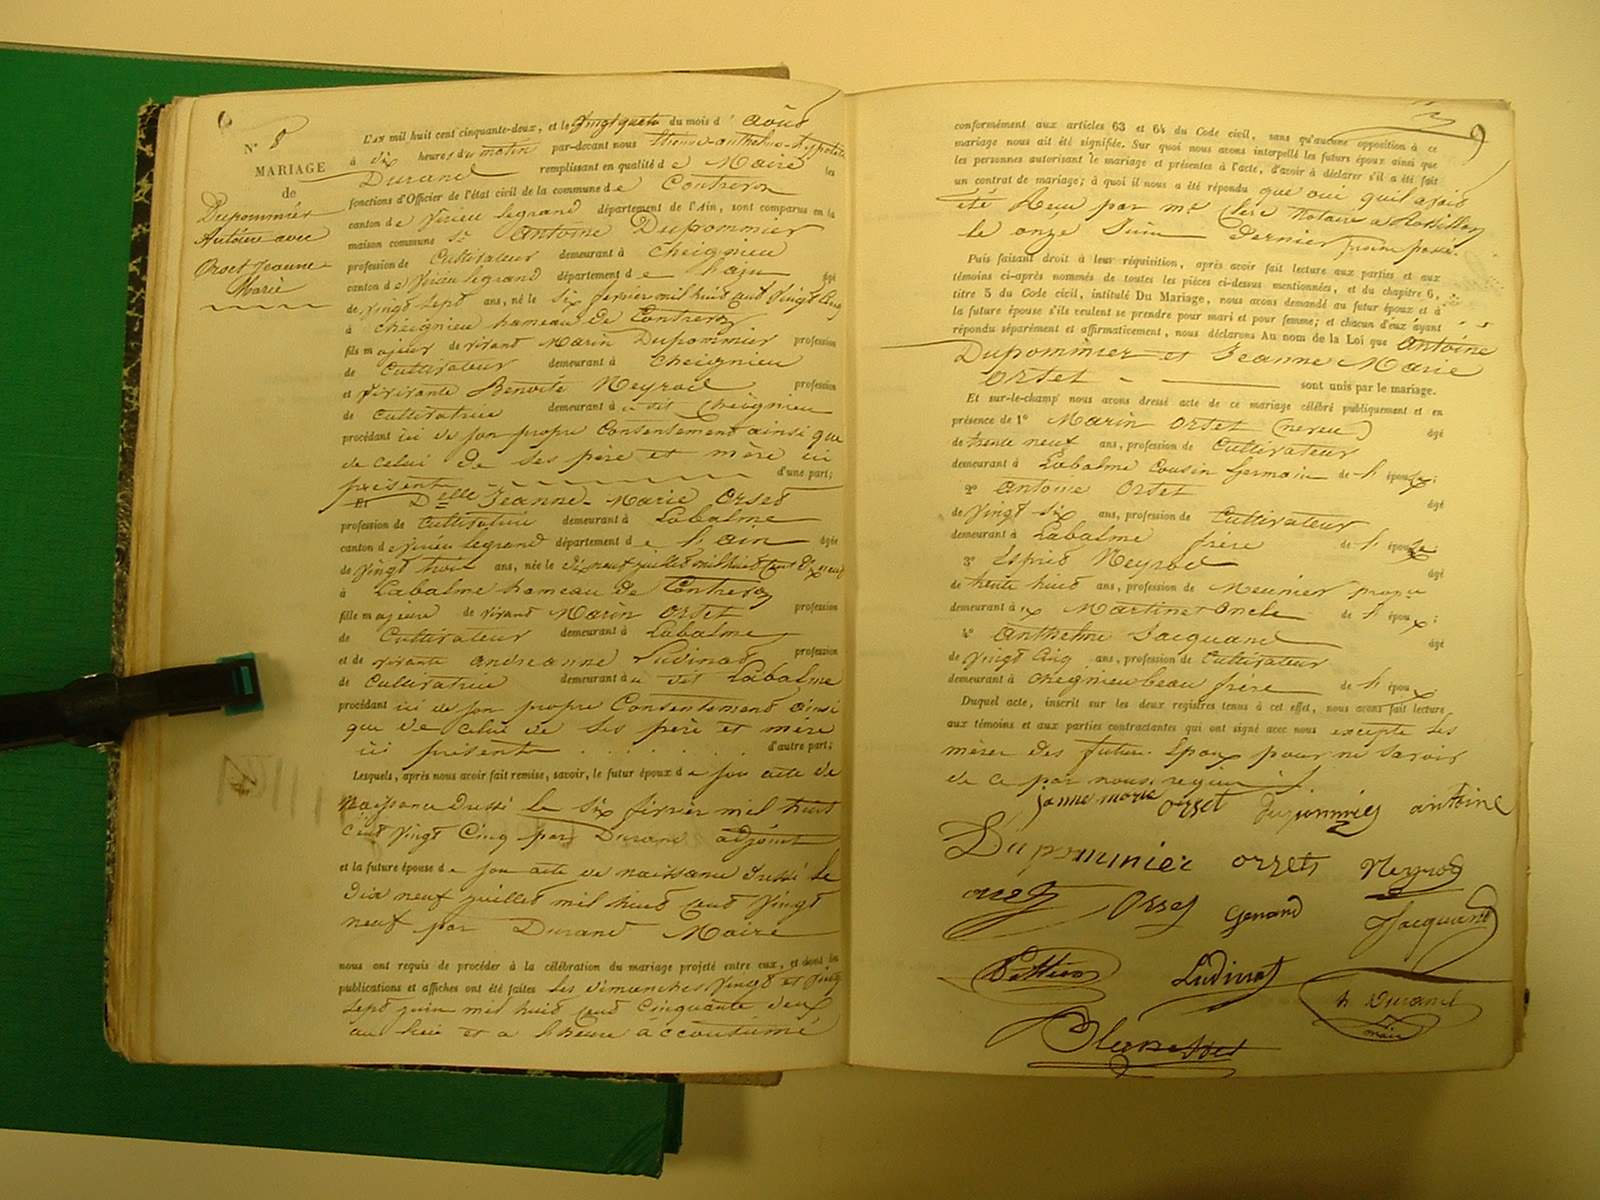 N° 8
MARIAGE
de
Dupommier
Antoine avec
Orset Jeanne
Marie
L'an mil huit cent cinquante-deux, et le vingt quatre du mois d' août
à six heures du matin par-devant nous anthelme hypolite
Durand remplissant en qualité de Maire les
fonctions d'Officier de l'état civil de la commune de Contrevoz
canton de Virieu legrand département de l'Ain, sont comparus en la
maison commune Sr Antoine Dupommier
profession de Cultivateur demeurant à Cheignieu
canton de Virieu legrand département de l'ain âgé
de vingt sept ans, né le six fevrier mil huit cent vingt cinq
à Cheignieu hameau de Contrevoz
fils majeur de vivant Marin Dupommier profession
de Cultivateur demeurant à Cheignieu
et de vivante Benoite Neyrod profession
de Cultivatrice demeurant à dit Cheignieu
procédant ici de son propre Consentement ainsi que
de celui de ses père et mère ici
présent d'une part;
Et Delle Jeanne-Marie Orset
profession de Cultivatrice demeurant à Labalme
canton de Virieu legrand département de l'ain âgée
de vingt trois ans, née le dix neuf juillet mil huit cent
à Labalme hameau de Contrevoz
fille majeure de vivant Marin Orset profession
de Cultivateur demeurant à Labalme
et de vivante andreanne Ludinat profession
de Cultivatrice demeurant à dit Labalme
procédant ici de son propre Consentement ainsi
que de celui de ses père et mère
ici présent d'autre part;
Lesquels, après nous avoir fait remise, savoir, le futur époux de son acte de
naissance Dressé le six février mil huit
cent vingt Cinq par Durand adjoint
et la future épouse de son acte de naissance Dressé le
Dix neuf juillet mil huit cent vingt
neuf par Durand Maire
nous ont requis de procéder à la célébration du mariage projeté entre eux, et dont les
publications et affiches ont été faites les dimanches vingt et vingt
sept juin mil huit cent Cinquante deux
au lieu et a l'heure accoutumé
9
conformément aux articles 63 et 64 du Code civil, sans qu'aucune opposition à ce
mariage nous ait été signifiée. Sur quoi nous avons interpellé les futurs époux ainsi que
les personnes autorisant le mariage et présentes à l'acte, d'avoir à déclarer s'il a été fait
un contrat de mariage; à quoi il nous a été répondu que oui qu'il avait
été Reçu par me notaire a Rossillon
le onze Juin Dernier
Puis faisant droit à leur réquisition, après avoir fait lecture aux parties et aux
témoins ci-après nommés de toutes les pièces ci-dessus mentionnées, et du chapitre 6,
titre 5 du Code civil, intitulé Du Mariage, nous avons demandé au futur époux et à
la future épouse s'ils veulent se prendre pour mari et pour femme; et chacun d'eux ayant
répondu séparément et affirmativement, nous déclarons Au nom de la Loi que Antoine
Dupommier et Jeanne Marie
Orset sont unis par le mariage.
Et sur-le-champ nous avons dressé acte de ce mariage célébré publiquement et en
présence de 1° Marin Orset (neveu) âgé
de trente neuf ans, profession de Cultivateur
demeurant à Labalme Cousin Germain de l'épouse;
2° Antoine Orset âgé
de Vingt Six ans, profession de Cultivateur
demeurant à Labalme frère de l'épouse
3° Esprit Neyrod âgé
de trente huit ans, profession de Meunier
demeurant à Martinet Oncle de l'époux;
4° Anthelme Jacquand âgé
de Vingt Cinq ans, profession de Cultivateur
demeurant à Cheignieu beau frère de l'époux
Duquel acte, inscrit sur les deux registres tenus à cet effet, nous avons fait lecture
aux témoins et aux parties contractantes qui ont signé avec nous excepté les
mères des futurs Epoux pour ne Savoir
de ce par nous requis
janne marie orset Dupommier antoine
Dupommier orset Neyrod
orset Orset Genand Jacquand
Ludinat
h Durand
maire